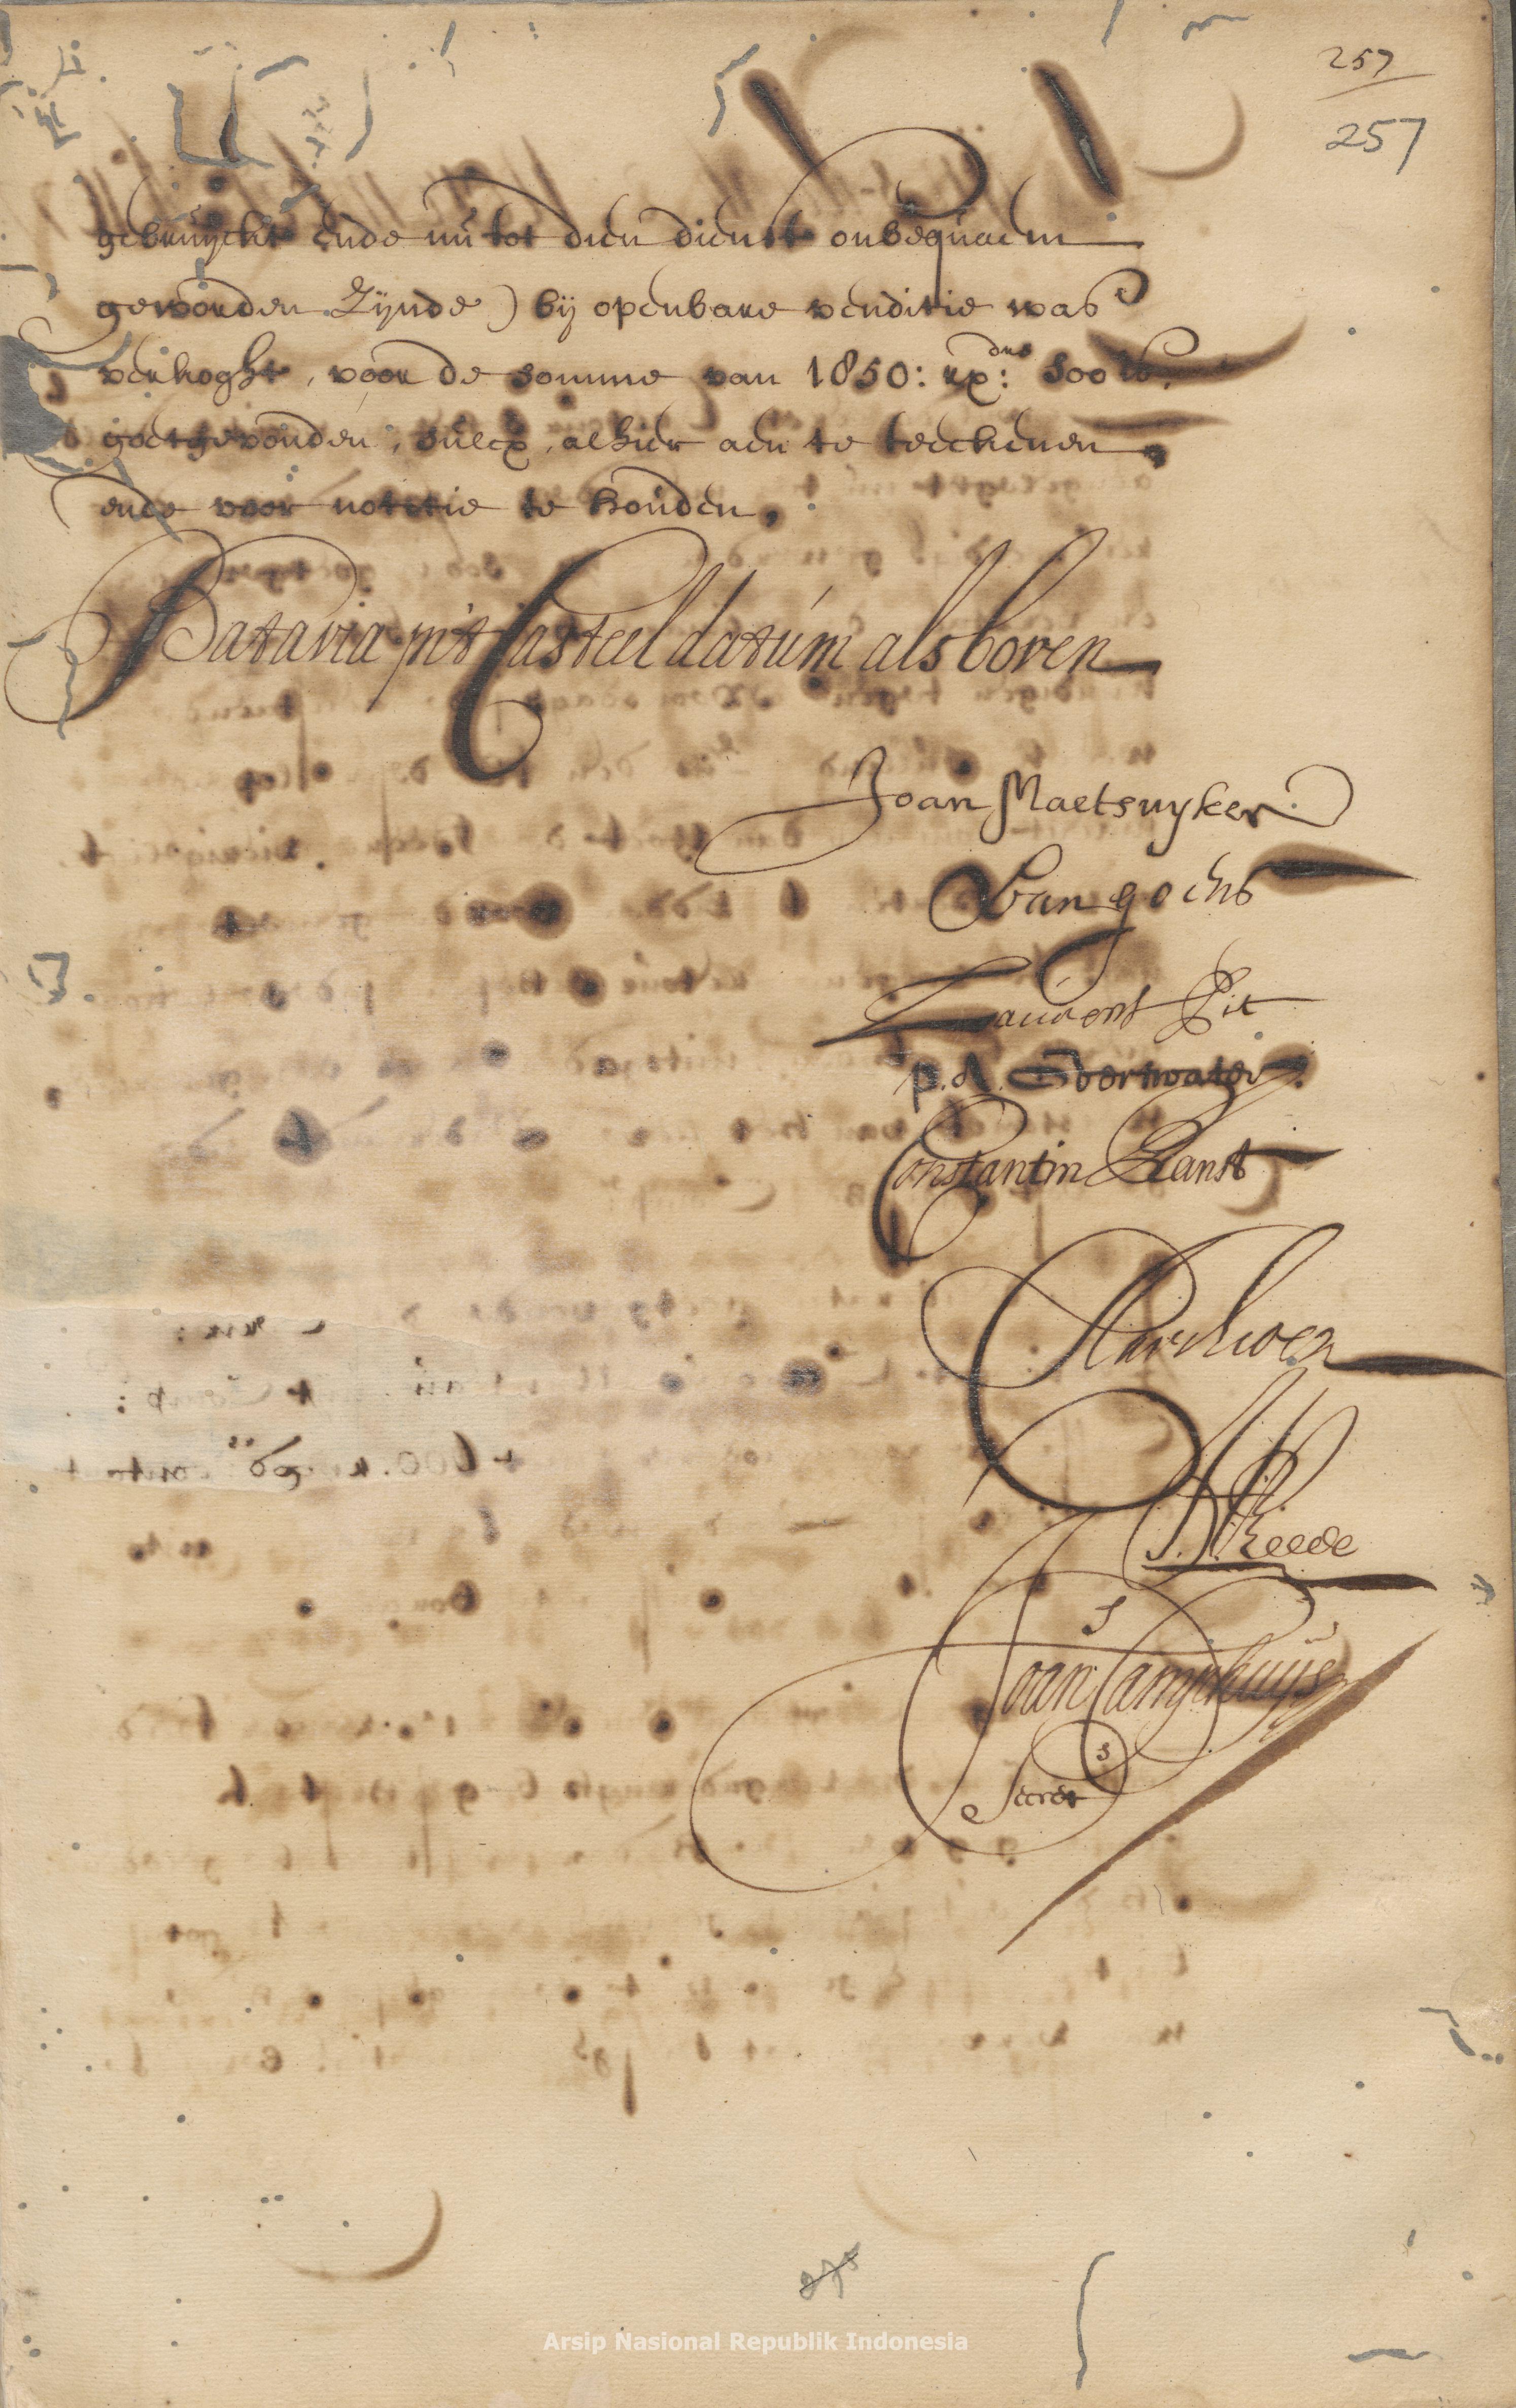 257
257
gebruijckt ende nu tot dien dienst onbequaem
gewonden Zijnde) bij openbare venditie was
verkoght, voor de somme van 1850: rx:drs Soo is
goetgevonden, sulcx, alhier aen te teeckenen
ende voor notitie te houden,
Batavia in't Casteel datum als boven
Joan Maetsuyker.
V van goens
Laurens Pit
p. A. Overwater
Constantin Ranst
A van Reede
Joan Camphuijs
Secret
Arsip Nasional Republik Indonesia